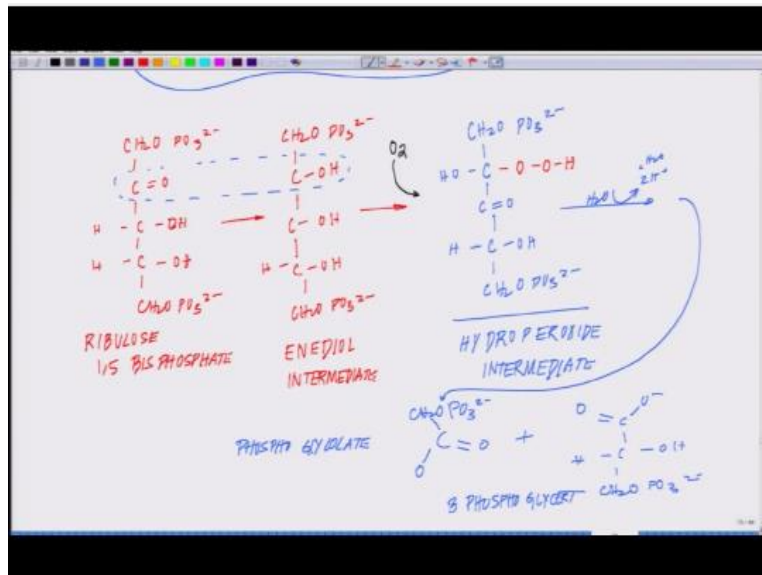 CH2O PO3 2-
C=O
H - C - OH
H - C - OH
CH2O PO3 2-
RIBULOSE
1,5 BIS PHOSPHATE
CH2O PO3 2-
C - OH
C - OH
H - C - OH
CH2O PO3 2-
ENEDIOL
INTERMEDIATE
O2
CH2O PO3 2-
HO - C - O - O - H
C=O
H - C - OH
CH2O PO3 2-
HYDROPEROXIDE
INTERMEDIATE
H2O
H2O
2H+
PHOSPHO GLYCOLATE
CH2O PO3 2-
C=O
O
+
O=C O-
H - C - OH
CH2O PO3 2-
3 PHOSPHO GLYCERT